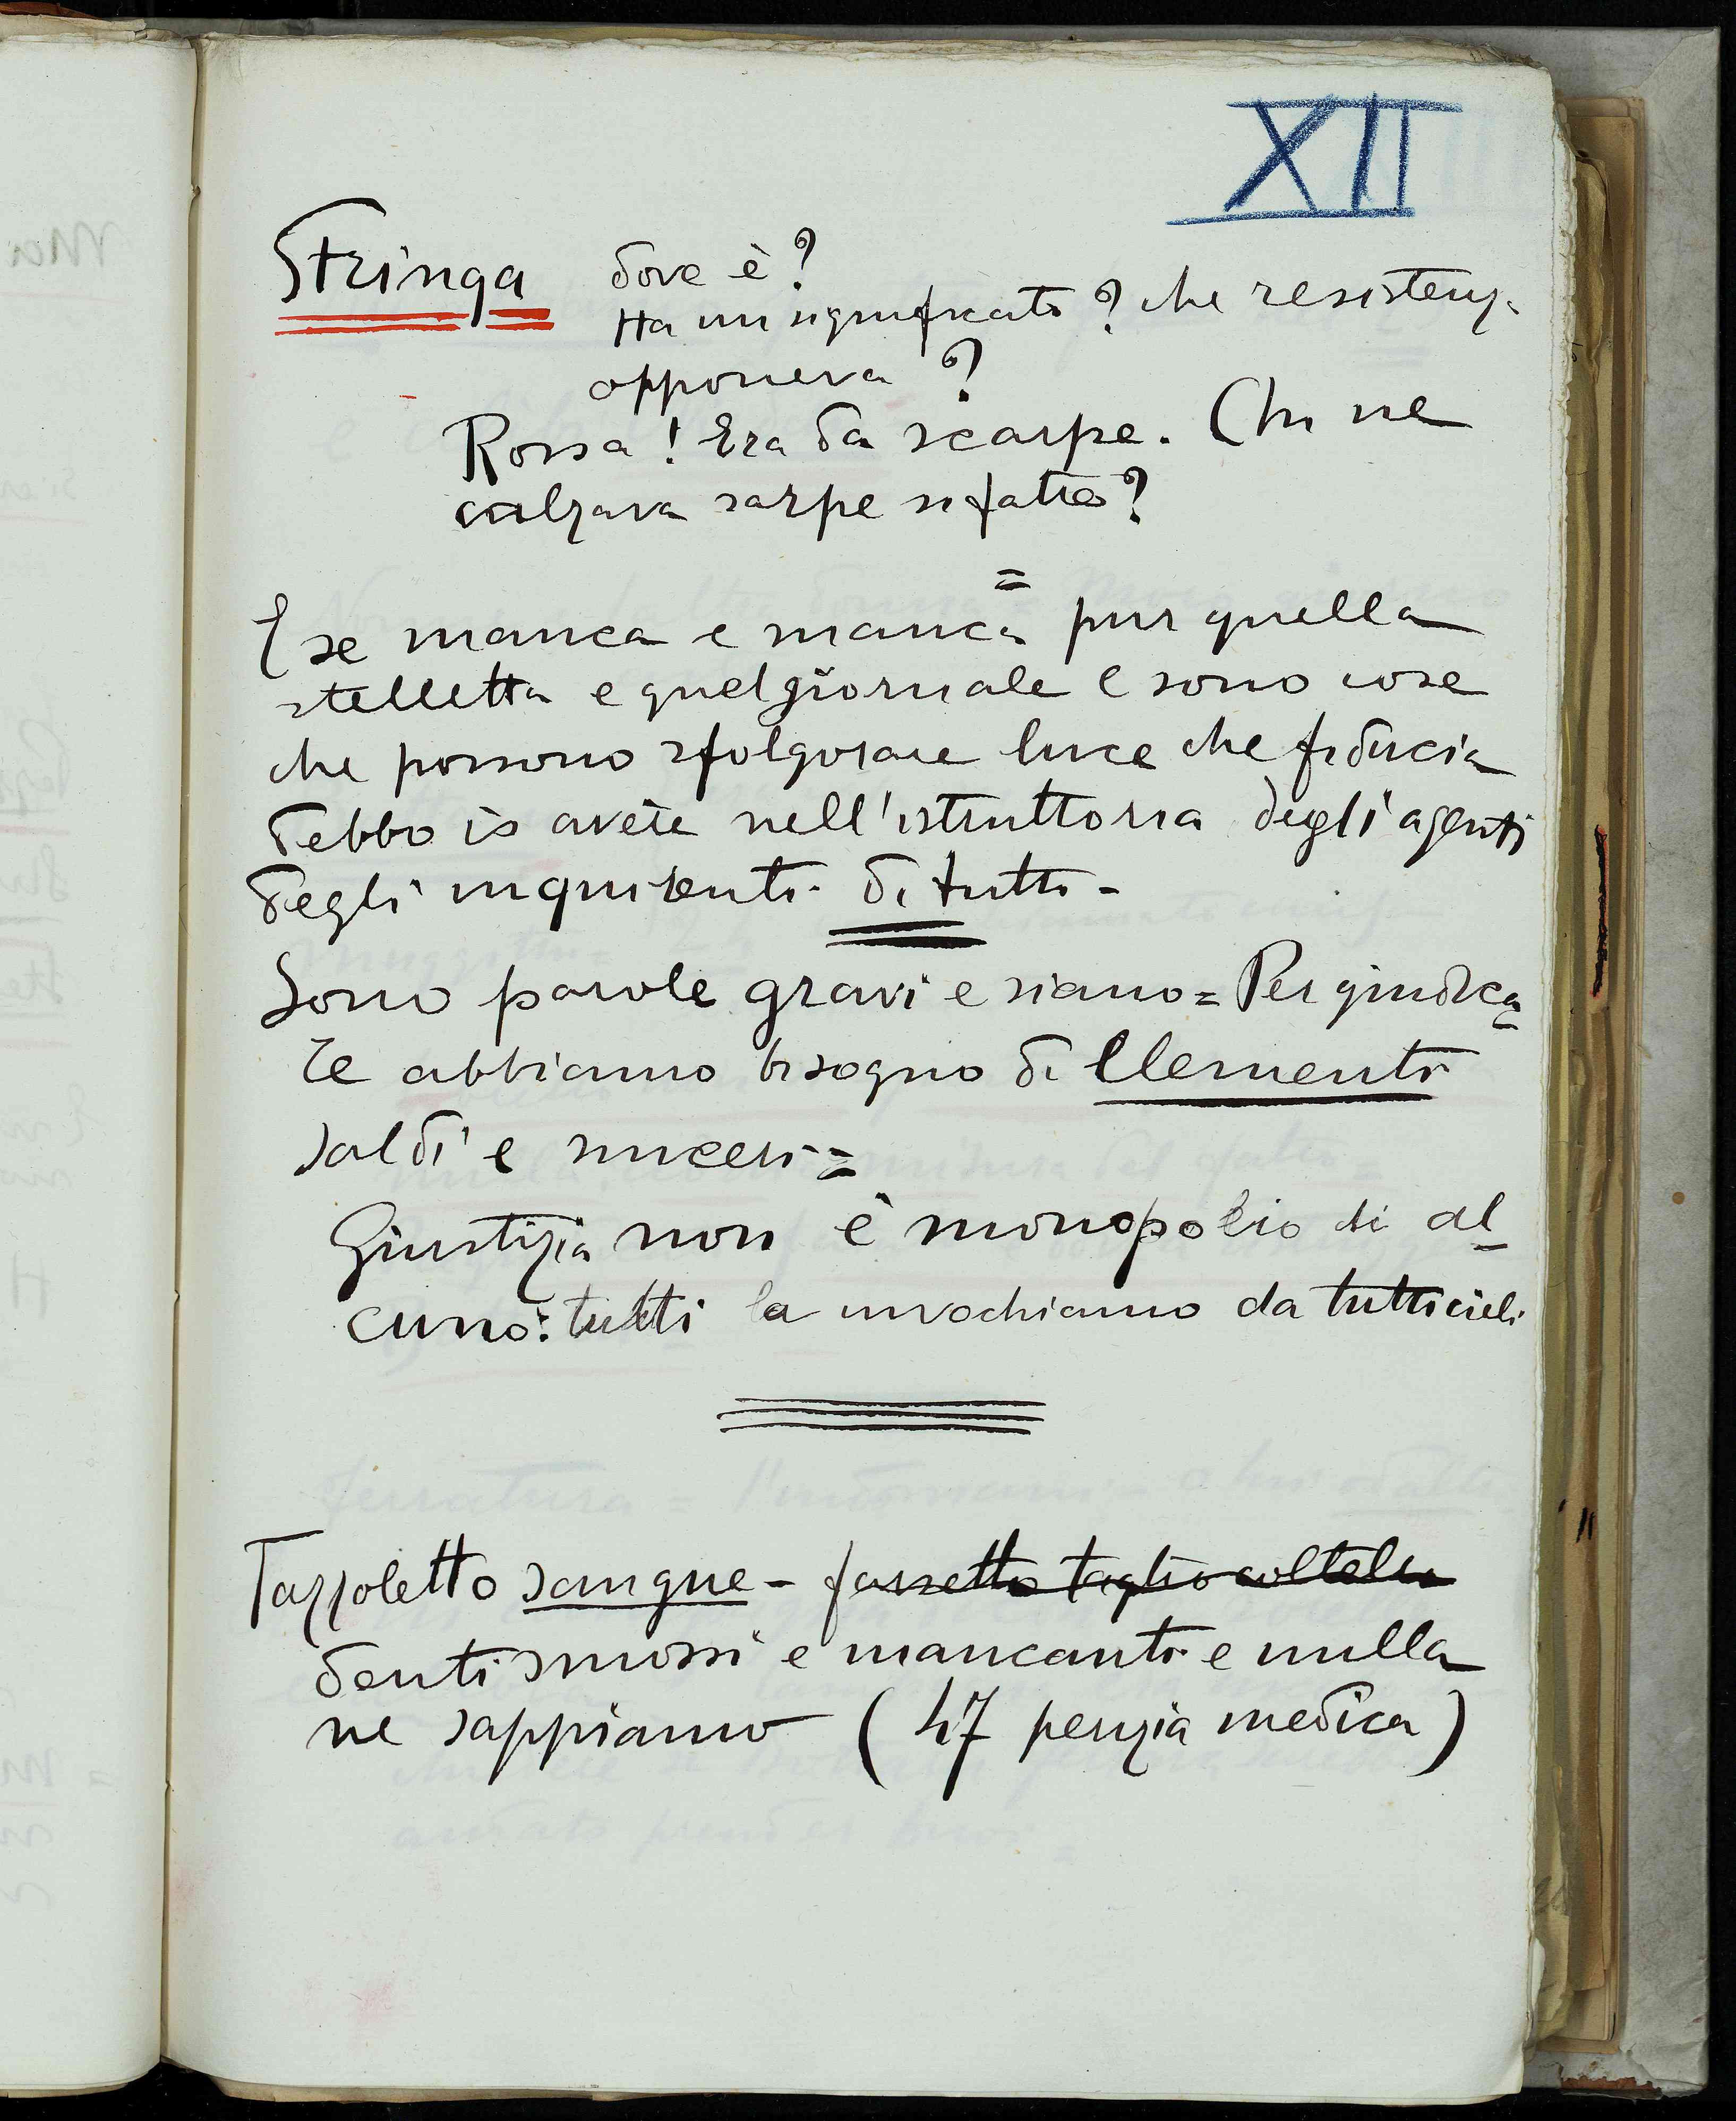 XII
Stringa dove è?
Ha un significato? che resistenz.
opponeva?
Rossa! Era da scarpe. Chi ne
calzava sarpe sifatte?
E se manca e manca = pur quella
stelletta e quel giornale e sono cose
che possono sfolgorare luce che fiducia
debbo io avere nell'istruttoria degli agenti
degli inquirenti di tutti -
Sono parole gravi e siano = Per giudica=
re abbiamo bisogno di Elementi
saldi e sinceri =
Giustizia non è monopolio di al=
cuno: tutti la invochiamo da tutti cieli
Fazzoletto sangue - farsetto taglio coltello
denti smossi e mancanti e nulla
ne sappiamo (47 perizia medica)